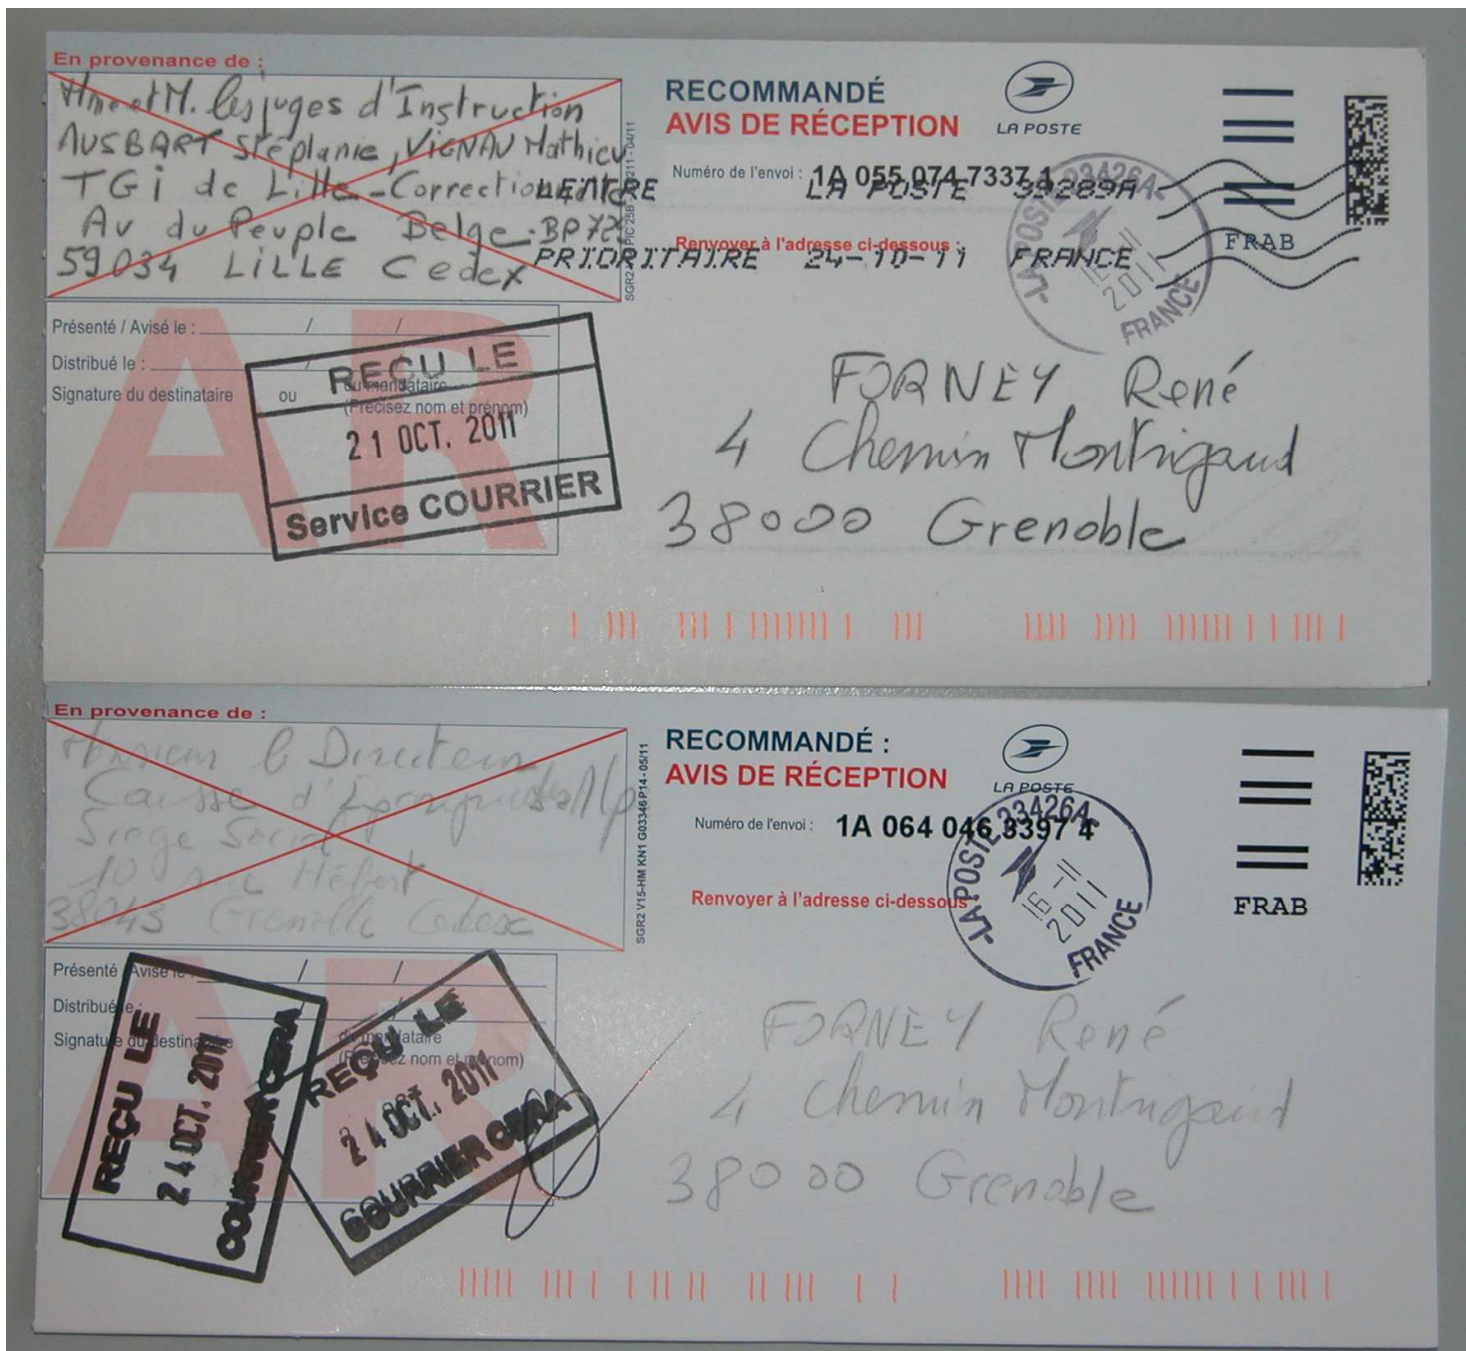 En provenance de :
Mme et M. les juges d'Instruction
AUSBART Stéplanie, VIGNAU Mathieu
TGi de Lille - Correctionnelle
Av du Peuple Belge - BP 72
59034 LiLLE Cedex
RECOMMANDÉ
AVIS DE RÉCEPTION
LA POSTE
Numéro de l'envoi : 1A 055 074 7337 1
LETTRE LA POSTE 39289A
Renvoyer à l'adresse ci-dessous :
PRIORITAIRE 24-10-11 FRANCE
LA POSTE 23426A
2011
FRANCE
FRAB
Présenté / Avisé le : / /
Distribué le : /
Signature du destinataire ou du mandataire
(Précisez nom et prénom)
AR
REÇU LE
21 OCT. 2011
Service COURRIER
FORNEY René
4 Chemin Montrigaud
38000 Grenoble
En provenance de :
Monsieur le Directeur
Caisse d'Epargne des Alp
Siège Social
10 rue Hébert
38043 Grenoble Cedex
SGR2 V15-HM KN1 G03346P14 - 05/11
RECOMMANDÉ :
AVIS DE RÉCEPTION
LA POSTE
Numéro de l'envoi : 1A 064 046 3397 4
Renvoyer à l'adresse ci-dessous
LA POSTE 23426A
16 -11
2011
FRANCE
FRAB
Présenté / Avisé le : / /
Distribué le :
Signature du destinataire du mandataire
(Précisez nom et prénom)
AR
REÇU LE
24 OCT. 2011
COURRIER CERA
REÇU LE
24 OCT. 2011
COURRIER CERA
FORNEY René
4 Chemin Montrigaud
38000 Grenoble